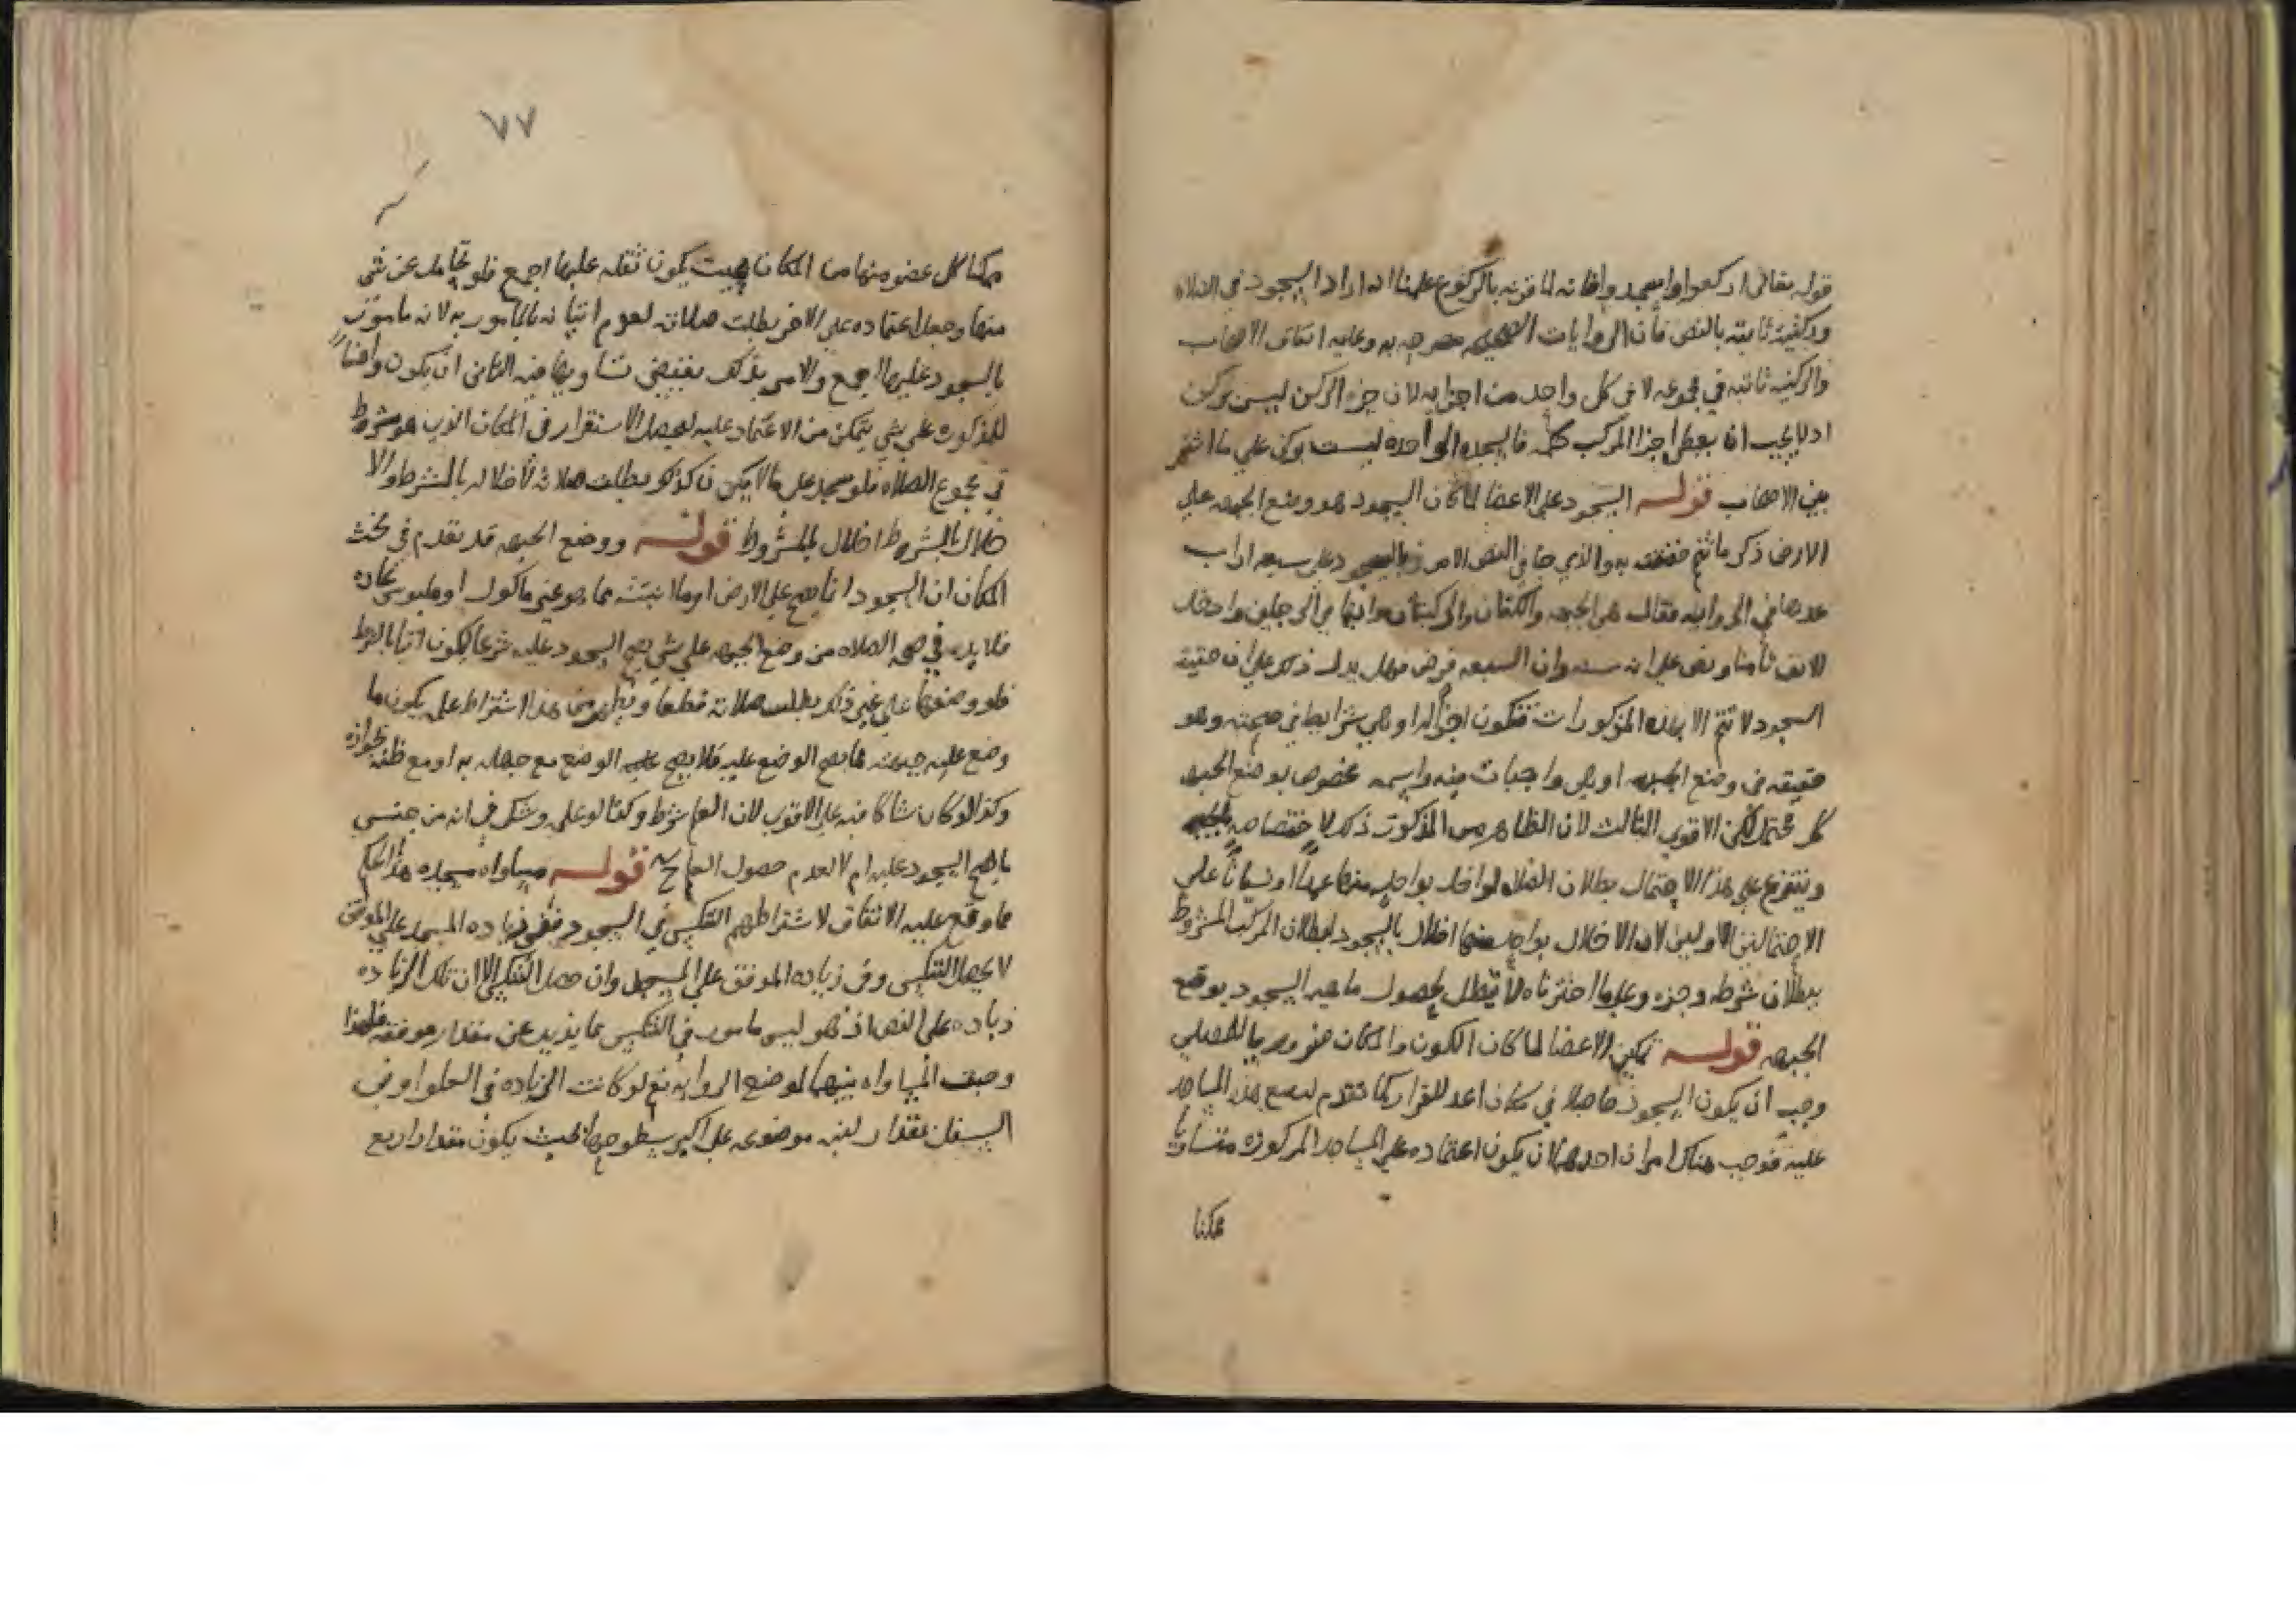 قوله تعالى اركعوا واسجدوا فانه لما قرنه بالركوع علمنا انه اراد السجود في الصلاه
وركنيته ثابته بالنص فان الروايات الصحيحه مصرحه به وعليه اتفاق الاصحاب
والركنيه ثابته في مجموعه لا في كل واحد من اجزايه لان جزء الركن ليس بركن
اذ لا يجب ان يعطى اجزا المركب حكمه فالسجده الواحده ليست بركن على ما اشتهر
بين الاصحاب قوله السجود على الاعضا لما كان السجود هو وضع الجبهه على
الارض ذكر ما تتم حقيقته به والذي جا في النص الامر بالسجود على سبعه اراب
عدها في الروايه فقال هي الجبهه والكفان والركبتان وابهامي الرجلين وادخل
الانف ثامنا ونص على انه سنه وان السبعه فرض فهل يدل ذلك على ان حقيقة
السجود لا تتم الا بهذه المذكورات فتكون اجزا له او هي شرايط في صحته وهو
حقيقه في وضع الجبهه او هي واجبات فيه واسمه مخصوص بوضع الجبهه
كل محتمل لكن الاقوى الثالث لان الظاهر من المذكور ذلك لاختصاصه بالجبهه
ويتفرع على هذا الاحتمال بطلان الصلاه لو اخل بواحد منها عمدا او نسيانا على
الاحتمالين الاولين لان الاخلال بواحد منها اخلال بالسجود لبطلان المركب المشروط
ببطلان شرطه وجزءه وعلى ما اخترناه لا تبطل لحصول ماهيه السجود بوضع
الجبهه قوله تمكين الاعضا لما كان الكون والمكان ضروريا للمصلي
وجب ان يكون السجود حاصلا في مكان اعد للقرار كما تقدم لوضع هذه المساجد
عليه فوجب هناك امران احدهما ان يكون اعتماده على المساجد المذكوره متساويا
ممكنا
٧٧
ممكنا كل عضو منها من المكان بحيث يكون ثقله عليها اجمع فلو تحامل عن شي
منها وجعل اعتماده على الاخر بطلت صلاته لعدم اتيانه بالمامور به لانه مامور
بالسجود عليها اجمع والامر بذلك يقتضي تساويها فيه الثاني ان يكون واضعا
للمذكوره على شي يتمكن من الاعتماد عليه ليحصل الاستقرار في المكان الذي هو شرط
في مجموع الصلاه فلو سجد على ما لا يكون كذلك بطلت صلاته لاخلاله بالشرط والا
خلال بالشرط اخلال بالمشروط قوله ووضع الجبهه قد تقدم في بحث
المكان ان السجود انما يصح على الارض او ما انبتته مما هو غير ماكول او ملبوس عاده
فلا بد في صحه الصلاه من وضع الجبهه على شي يصح السجود عليه شرعا ليكون اتيا بالشرط
فلو وضعها على غير ذلك بطلت صلاته قطعا ويظهر من هذا اشتراط علمه بكون ما
وضع عليه جبهته مما يصح الوضع عليه فلا يصح الوضع مع جهله به او مع ظنه بجوازه
وكذا لو كان شاكا فيه على الاقوى لان العلم شرط وكذا لو علم وشك في انه من جنس
ما يصح السجود عليه ام لا لعدم حصول العلم ح قوله مساواه مسجده هذا الحكم
مما وقع عليه الاتفاق لاشتراطهم التنكيس في السجود ففي زياده المسجد على الموقف
لا يحصل التنكيس وفي زياده الموقف على المسجد وان حصل التنكيس الا ان تلك الزياده
زياده على النص اذ هو ليس مامور في التنكيس بما يزيد عن مقدار موقفه فلهذا
وجبت المساواه بينهما لموضع الروايه نعم لو كانت الزياده في العلو او في
السفل بمقدار لبنه موضوعه على اكبر سطوحها بحيث يكون مقدار اربع